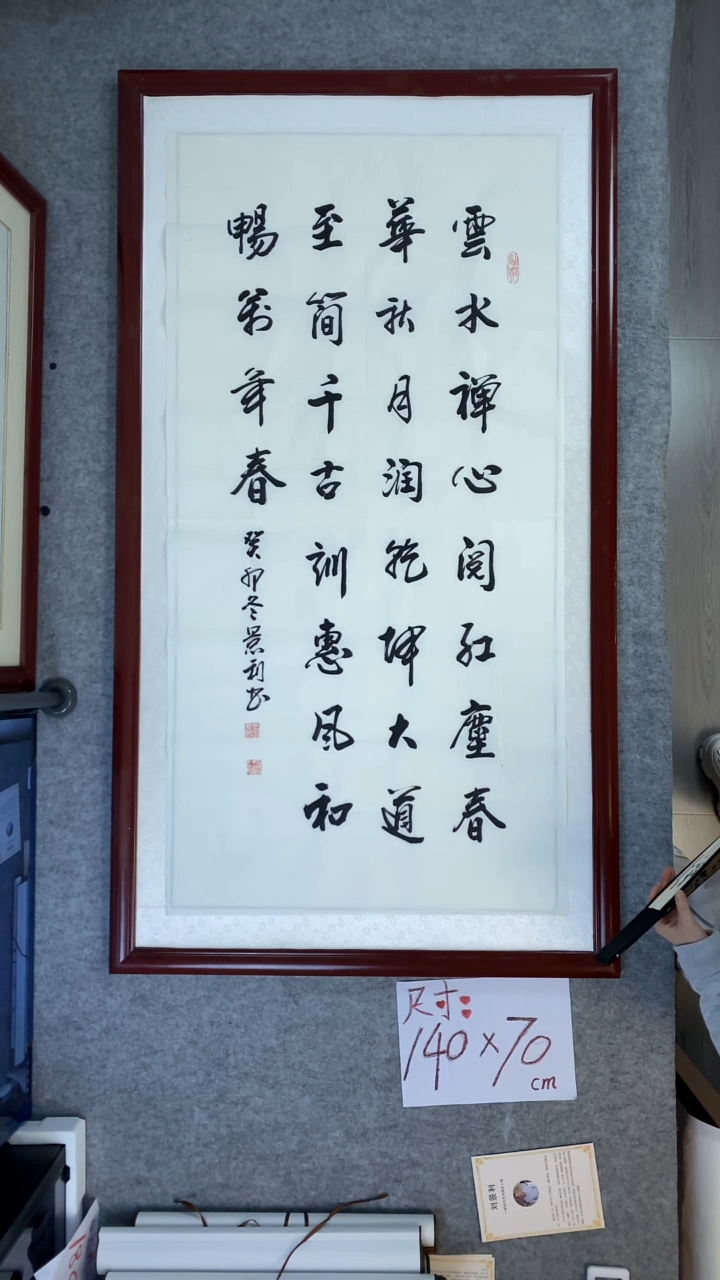 雲水禪心閱紅塵春
華秋月润乾坤大道
至简千古訓惠風和
暢萬年春
癸卯冬景利书
尺寸:
140×70
cm
刘景利